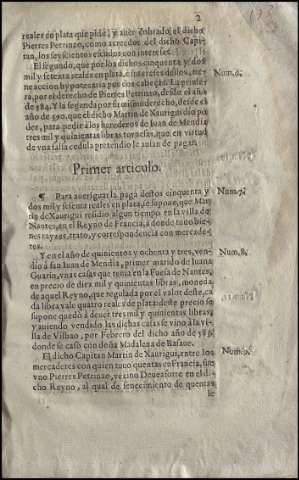 2
reales en plata que pide, y auer cobrado el dicho
Pierres Petrinao, como acreedor del dicho Capi-
tan, los seys cientos escudos con interesses.
El segundo, que por los dichos cinquenta y dos
mil y setenta reales en plata, è interesses dellos, tie-
ne accion hypotecaria por dos cabeças. La prime-
ra, por el derecho de Pierres Petrinao, desde el año
de 584. Y la segunda por su mismo derecho, desde el
año de 590. que el dicho Martin de Xaurigui dio po-
der, para pedir a los herederos de Iuan de Mendia
tres mil y quinientas libras tornesas, que en virtud
de vna falsa cedula pretendio le auian de pagar.
Num. 6.
Primer articulo.
¶ Para aueriguar la paga destos cinquenta y
dos mil y setenta reales en plata, se supone, que Mar-
tin de Xaurigui residio algun tiempo en la villa de
Nantes, en el Reyno de Francia, a donde tuuo bie-
nes rayzes, trato, y correspondencia con mercade-
res.
Num. 7.
Y en el año de quinientos y ochenta y tres, ven-
dio a Iuan de Mendia, primer marido de Iuana
Guaria, vnas casas que tenia en la Fuesa de Nantes,
en precio de diez mil y quinientas libras, moneda
de aquel Reyno, que regulada por el valor deste, ca-
da libra vale quatro reales de plata: deste precio se
supone quedò a deuer tres mil y quinientas libras,
y auiendo vendido las dichas casas se vino a la vi-
lla de Vilbao, por Febrero del dicho año de 583.
donde se casò con doña Madalena de Basaue.
Num. 8.
El dicho Capitan Martin de Xaurigui, entre los
mercaderes con quien tuuo quentas en Francia, fue
vno Pierres Petrinao, vezino
en el di-
cho Reyno, al qual de fenecimiento de quentas
Num. 9.
le